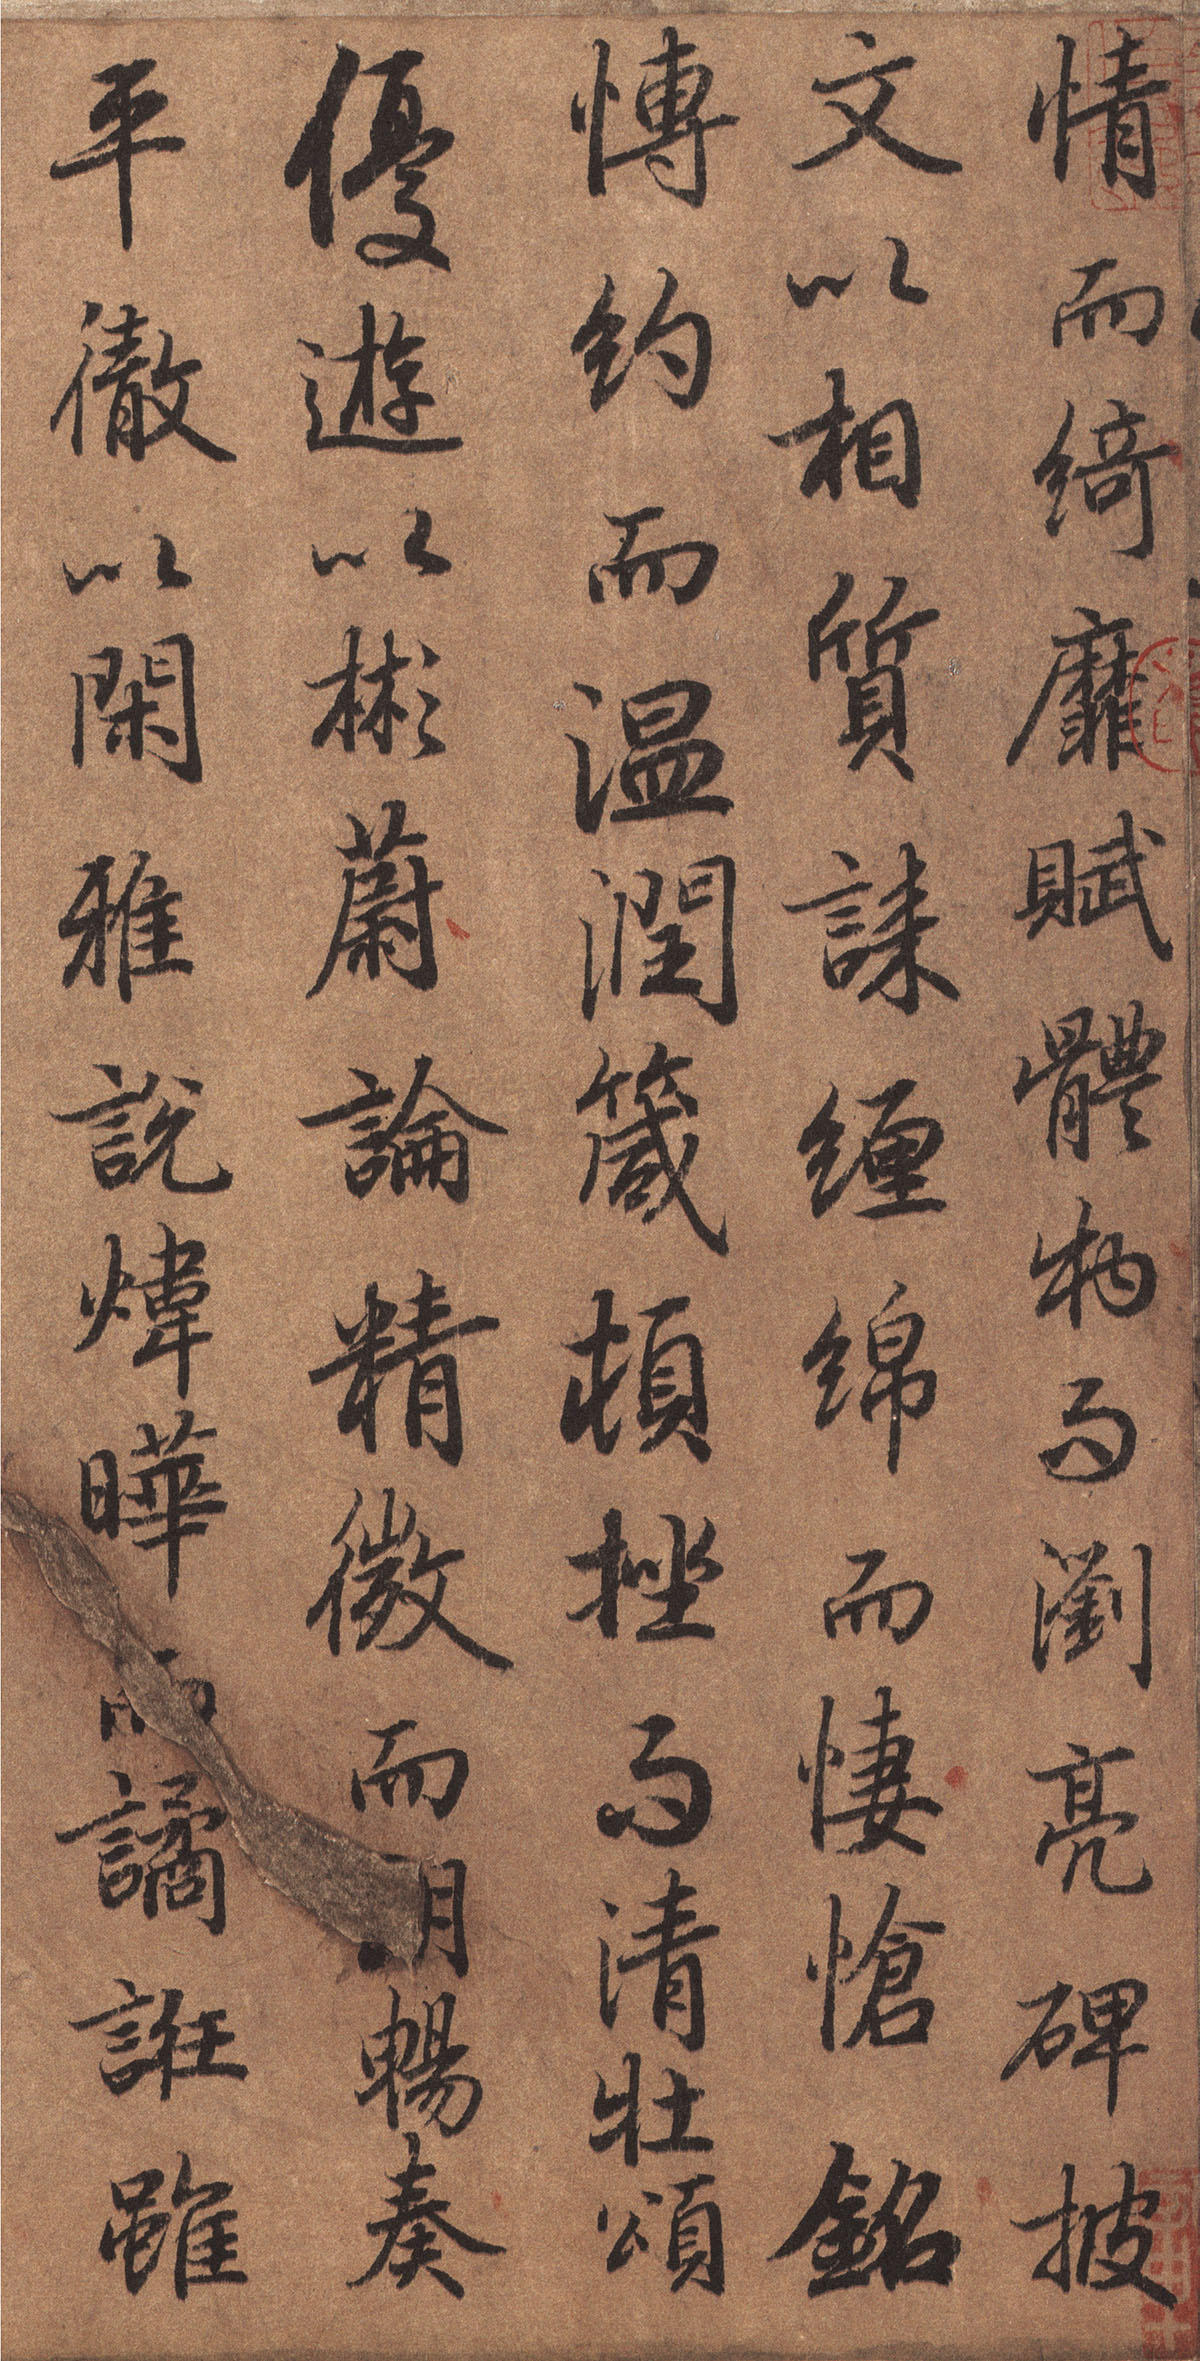 情而綺靡賦體物而瀏亮碑披
文以相質誄纏綿而悽愴銘
博約而溫潤箴頓挫而清壯頌
優遊以彬蔚論精微而朗暢奏
平徹以閑雅說煒曄而譎誑雖